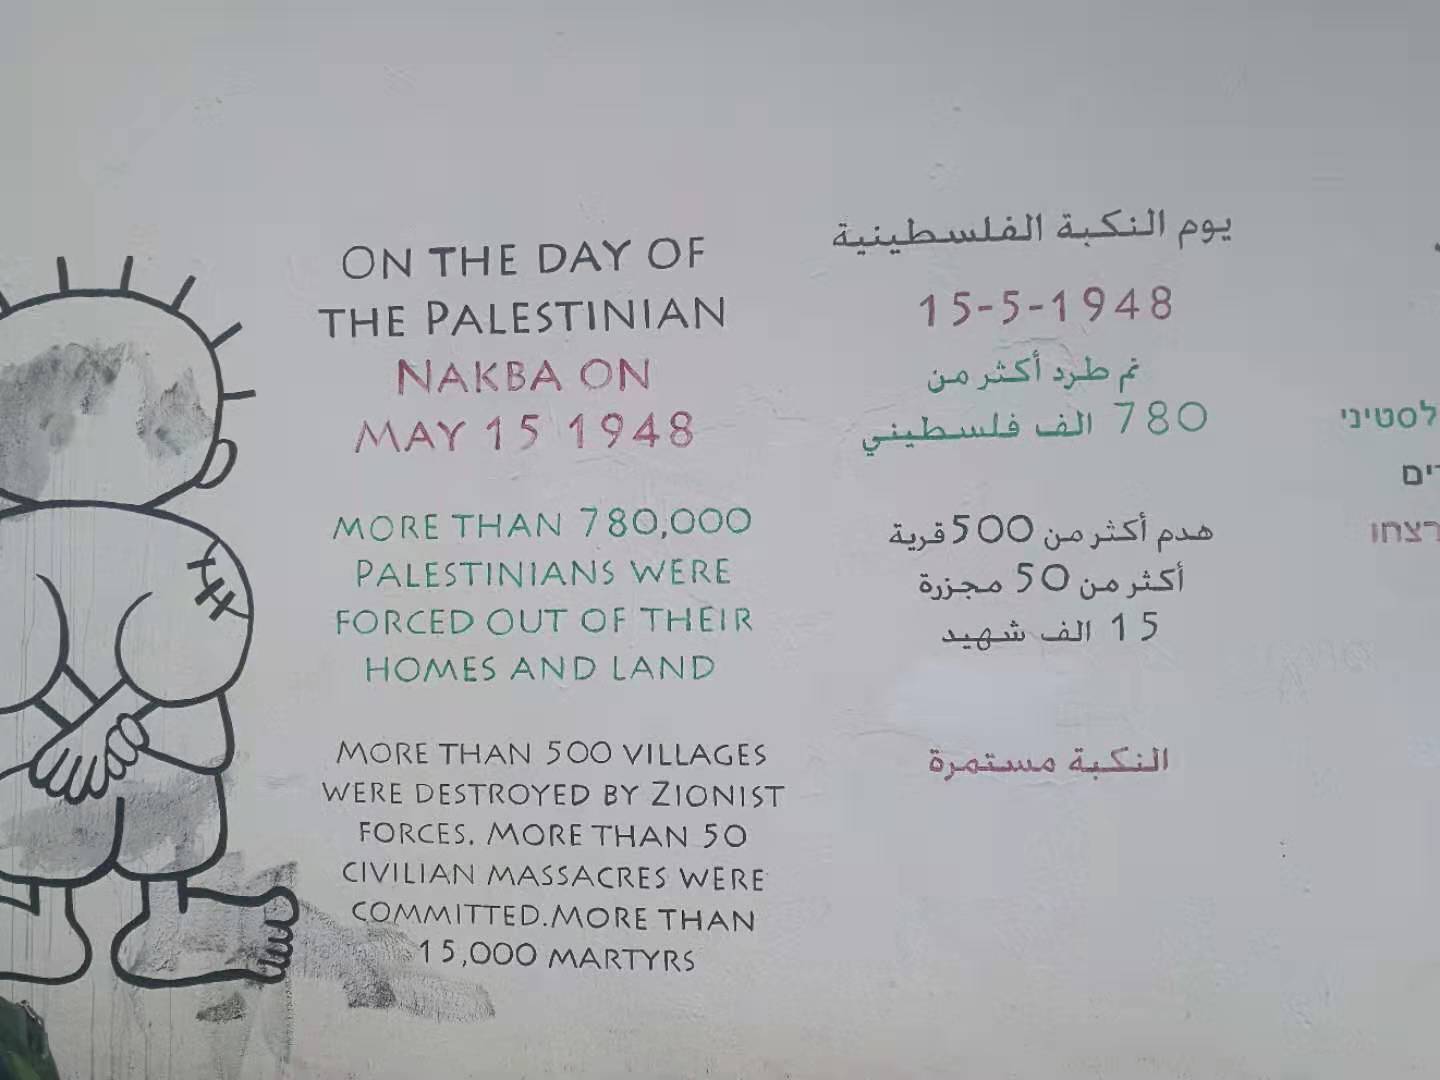 ON THE DAY OF
THE PALESTINIAN
NAKBA ON
MAY 15 1948
MORE THAN 780,000
PALESTINIANS WERE
FORCED OUT OF THEIR
HOMES AND LAND
MORE THAN 500 VILLAGES
WERE DESTROYED BY ZIONIST
FORCES. MORE THAN 50
CIVILIAN MASSACRES WERE
COMMITTED.MORE THAN
15,000 MARTYRS
يوم النكبة الفلسطينية
15-5-1948
تم طرد أكثر من
780 الف فلسطيني
هدم أكثر من 500 قرية
أكثر من 50 مجزرة
15 الف شهيد
النكبة مستمرة